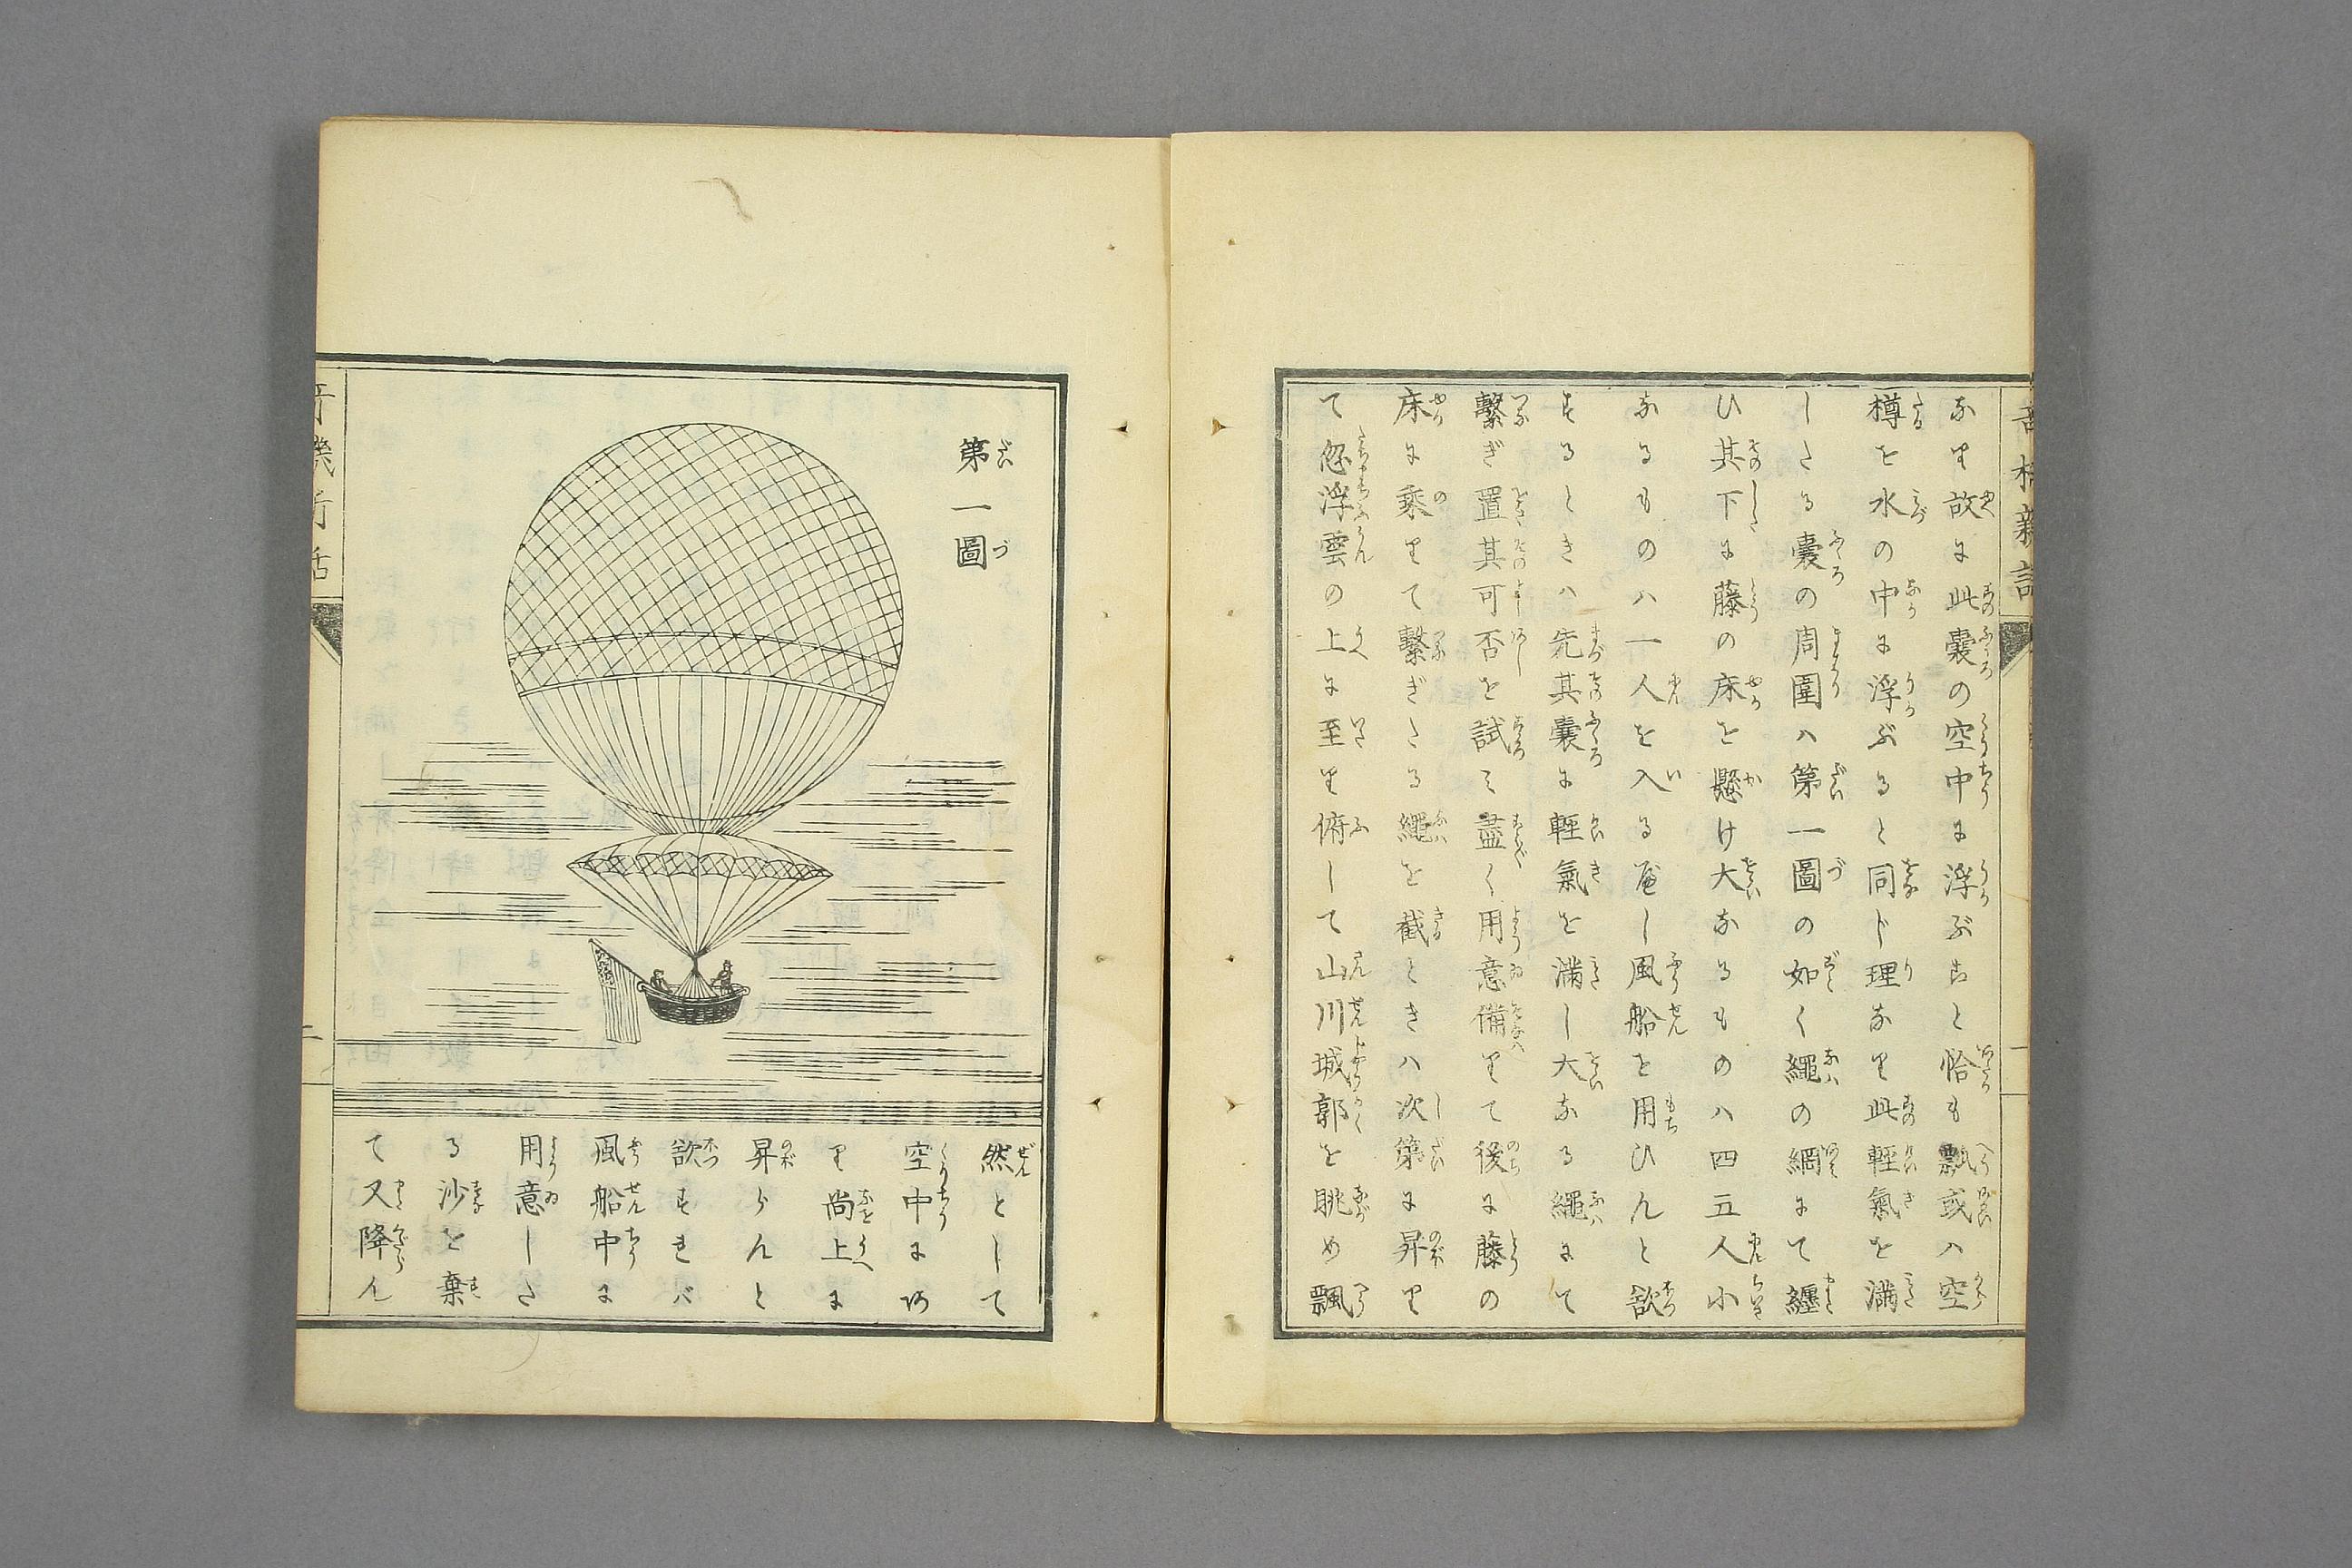 なり故に此嚢の空中に浮ぶこと恰も瓢或ハ空
樽を水の中に浮ぶると同じ理なり此軽氣を満
しさる嚢の周圍ハ第一圖の如く繩の網にて纏
ひ其下に藤の床を懸け大なるものハ四五人小
なるものハ一人を入る屋し風船を用ひんと欲
するときハ先其嚢に軽氣を満し大なる繩にて
繋ぎ置其可否を試ミ盡く用意備りて後に藤の
床に乘りて繋ぎたる繩を截ときハ次第に昇り
て忽浮雲の上に至り俯して山川城郭を眺め飄
第一圖
然として
空中にあ
り尚上に
昇らんと
欲すれバ
風船中に
用意した
る沙を棄
て又降ん